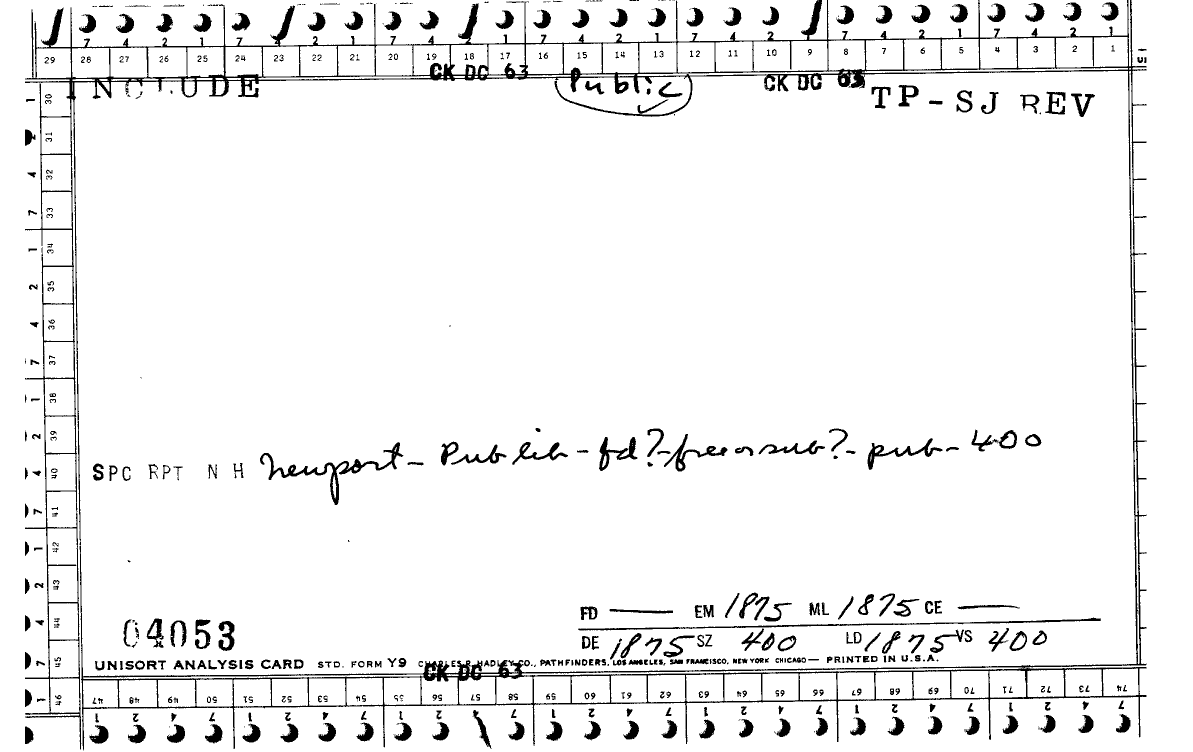 7 4 2 1 7 2 1 7 4 1 7 4 2 1 7 4 2 1 7 4 2 1 7 4 2 1
29 28 27 26 25 24 23 22 21 20 19 18 17 16 15 14 13 12 11 10 9 8 7 6 5 4 3 2 1
CK DC 63 CK DC 63
INCLUDE Public TP-SJ REV
1 30
31
4 32
7 33
1 34
2 35
4 36
7 37
1 38
2 39
SPC RPT N H Newport - Pub lib - fd? - free or sub? - pub - 400
4 40
7 41
1 42
2 43
FD — EM 1875 ML 1875 CE —
4 44
04053 DE 1875 SZ 400 LD 1875 VS 400
7 45
UNISORT ANALYSIS CARD STD. FORM Y9 CHARLES R. HADLEY CO., PATHFINDERS, LOS ANGELES, SAN FRANCISCO, NEW YORK CHICAGO — PRINTED IN U.S.A.
CK DC 63
1 46
47 48 49 50 51 52 53 54 55 56 57 58 59 60 61 62 63 64 65 66 67 68 69 70 71 72 73 74
1 2 4 7 1 2 4 7 1 2 4 7 1 2 4 7 1 2 4 7 1 2 4 7 1 2 4 7